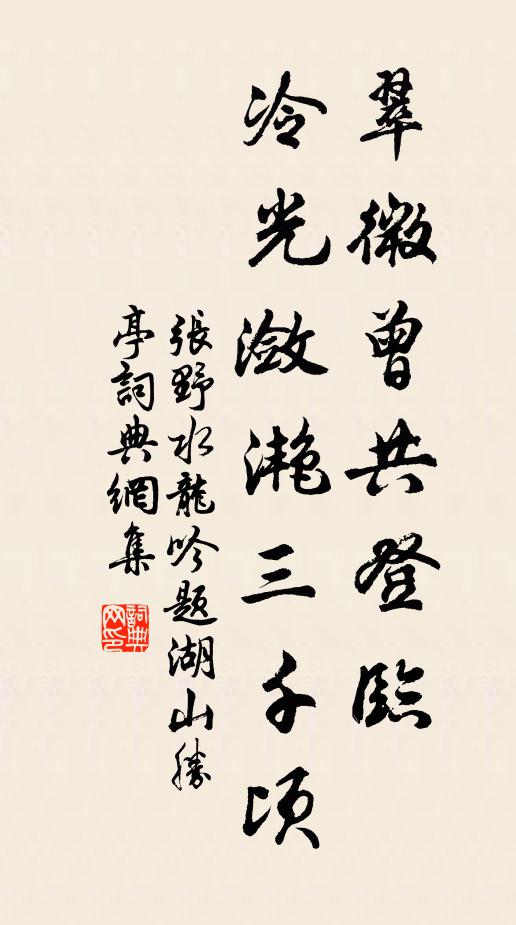 翠微曾共登臨
冷光瀲灧三千頃
張野水龍吟題湖山勝
亭詞典網集
詞典
网印